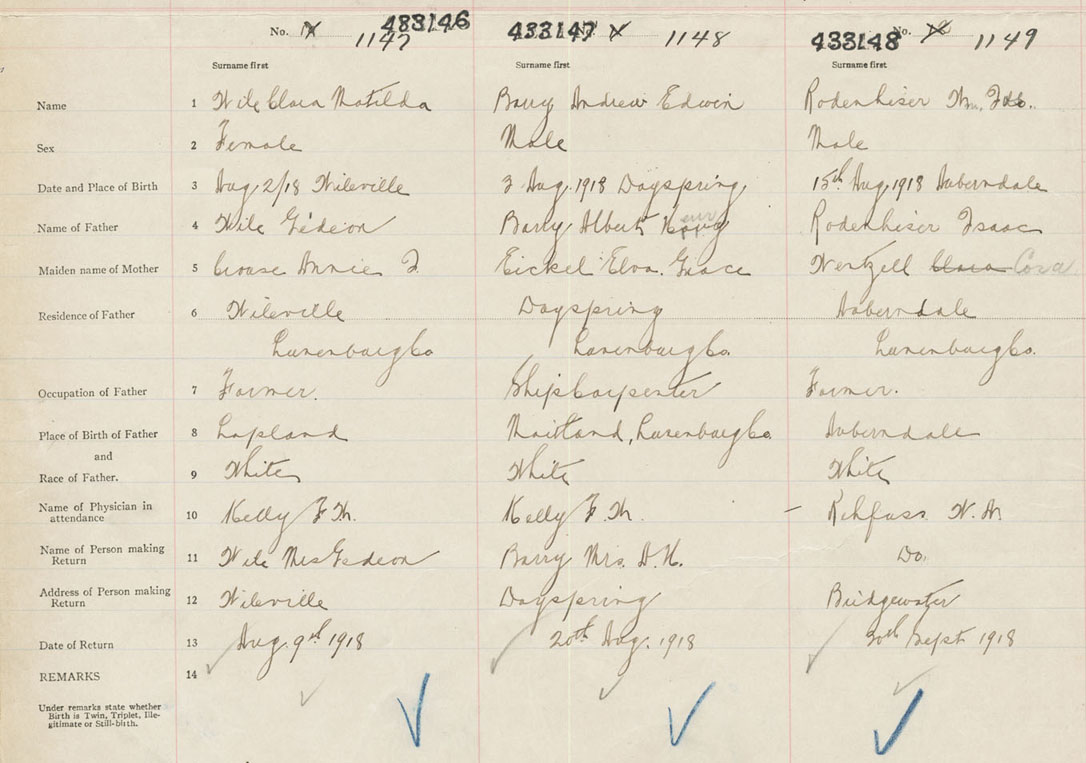 No. 1147 433146
433147 No. 1148
433148 No. 1149
Surname first Surname first Surname first
Name 1 Wile Clara Matilda Barry Andrew Edwin Rodenhiser Wm.
Sex 2 Female Male Male
Date and Place of Birth 3 Aug 2/18 Wileville 3 Aug. 1918 Dayspring 15th Aug 1918 Auburndale
Name of Father 4 Wile Gideon Barry Albert Rodenhiser Isaac
Maiden name of Mother 5 Crouse Annie J. Eickel Elva Grace Wentzell Clara Cora
Residence of Father 6 Wileville Dayspring Auburndale
Lunenburg Co Lunenburg Co. Lunenburg Co.
Occupation of Father 7 Farmer. Ship Carpenter Farmer.
Place of Birth of Father 8 Lapland Maitland, Lunenburg Co. Auburndale
and
Race of Father. 9 White White White
Name of Physician in
attendance 10 Kelly F. W. Kelly F. W. Rehfuss W. N.
Name of Person making
Return 11 Wile Mrs Gideon Barry Mrs. A. H. Do.
Address of Person making
Return 12 Wileville Dayspring Bridgewater
Date of Return 13 Aug. 9th 1918 20th Aug. 1918 30th Sept 1918
REMARKS 14
Under remarks state whether
Birth is Twin, Triplet, Ille-
gitimate or Still-birth.